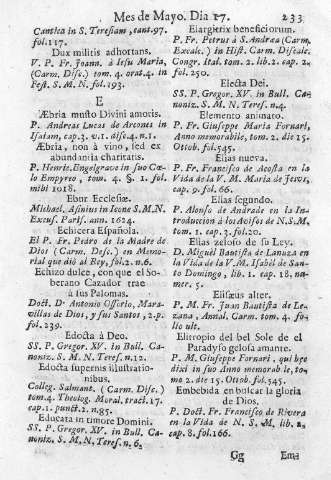 Mes de Mayo. Dia 17. 233
Cantica in S. Teresiam, cant. 97.
fol. 117.
Dux militis adhortans.
V. P. Fr. Joann. à Iesu Maria,
(Carm. Disc.) tom. 4. orat. 4. in
Fest. S. M. N. fol. 193.
E
Æbria musto Divini amoris.
P. Andreas Lucas de Arcones in
Isaiam, cap. 3. v. 1. diss. 4. n. 1.
Æbria, non à vino, sed ex
abundantia charitatis.
P. Henric. Engelgrave in suo Cœ-
lo Empyreo, tom. 4. §. 1. fol.
mibi 1018.
Ebor Ecclesiæ.
Michael, Asinius in Icone S. M. N.
Excus. Paris. ann. 1624.
Echicera Española.
El P. Fr. Pedro de la Madre de
Dios (Carm. Desc.) en Memo-
rial que diò al Rey, fol. 2. n. 6.
Echizo dulce, con que el So-
berano Cazador trae
à sus Palomas.
Doct. D. Antonio Ossorio, Mara-
villas de Dios, y sus Santos, 2. p.
fol. 239.
Edocta à Deo.
SS. P. Gregor. XV. in Bull. Ca-
nonizat. S. M. N. Teres. n. 12.
Edocta supernis illustratio-
nibus.
Colleg. Salmant. (Carm. Disc.)
tom. 4. Theolog. Moral. tract. 17.
cap. 1. punct. 2. n. 85.
Educata in timore Domini.
SS. P. Gregor. XV. in Bull. Ca-
nonizat. S. M. N. Teres. n. 6.
Elargitrix beneficiorum.
P. Fr. Petrus à S. Andræa (Carm.
Excalc.) in Hist. Carm. Discalc.
Congr. Ital. tom. 2. lib. 2. cap. 2.
fol. 250.
Electa Dei.
SS. P. Gregor. XV. in Bull. Ca-
nonizat. S. M. N. Teres. n. 4.
Elemento animato.
P. Fr. Giuseppe Maria Fornari,
Anno memorabile, tom. 2. die 15.
Ottob. fol. 545.
Elias nueva.
P. Fr. Francisco de Acosta en la
Vida de la V. M. Maria de Jesus,
cap. p. fol. 66.
Elias segundo.
P. Alonso de Andrade en la In-
troduccion à los Avisos de N. S. M.
tom. 1. cap. 3. fol. 20.
Elias zeloso de su Ley.
D. Miguèl Bautista de Lanuza en
la Vida de la V. M. Isabèl de San-
to Domingo, lib. 1. cap. 18. nu-
mer. 5.
Elisæus alter.
P. M. Fr. Juan Bautista de Le-
zana, Annal. Carm. tom. 4. fo-
lio ult.
Elitropio del bel Sole de el
Paradyso gelosa amante.
P. M. Giuseppe Fornari, qui bæc
dixi in suo Anno memorabile, to-
mo 2. die 15. Ottob. fol. 545.
Embebida en buscar la gloria
de Dios.
P. Doct. Fr. Francisco de Rivera
en la Vida de N. S. M, lib. 2.
cap. 8. fol. 166.
Gg Ema